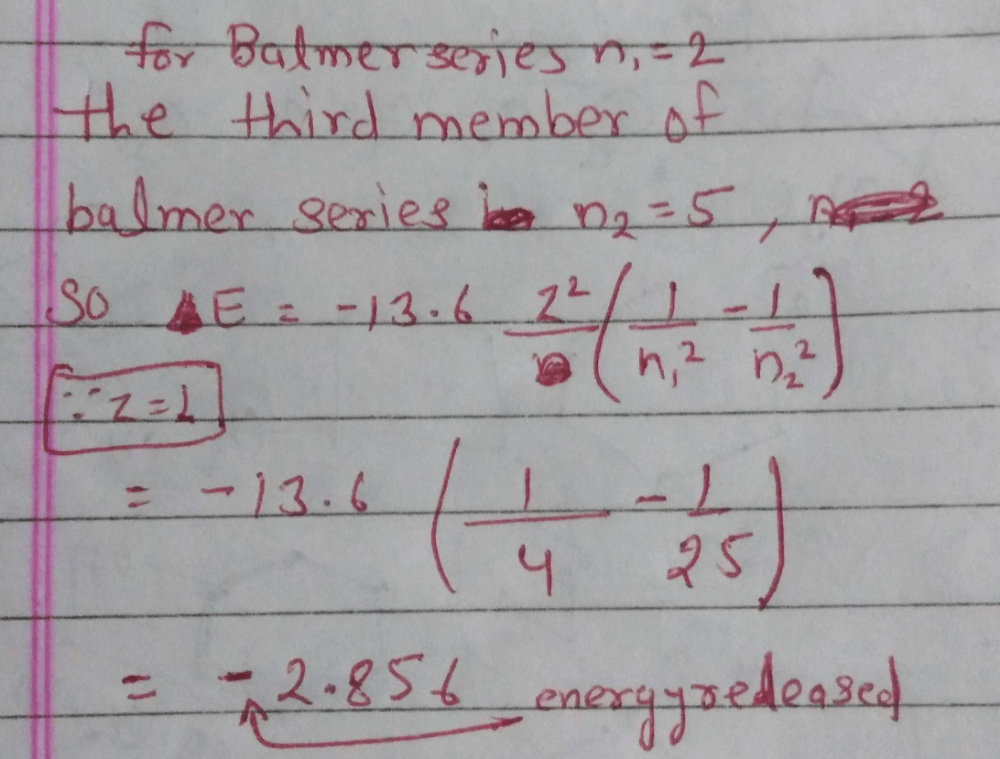 for Balmer series n₁ = 2
the third member of
balmer series n₂ = 5 ,
So ΔE = -13.6 Z² ( 1/n₁² - 1/n₂² )
∵ z = 1
= -13.6 ( 1/4 - 1/25 )
= -2.856 energy redeased